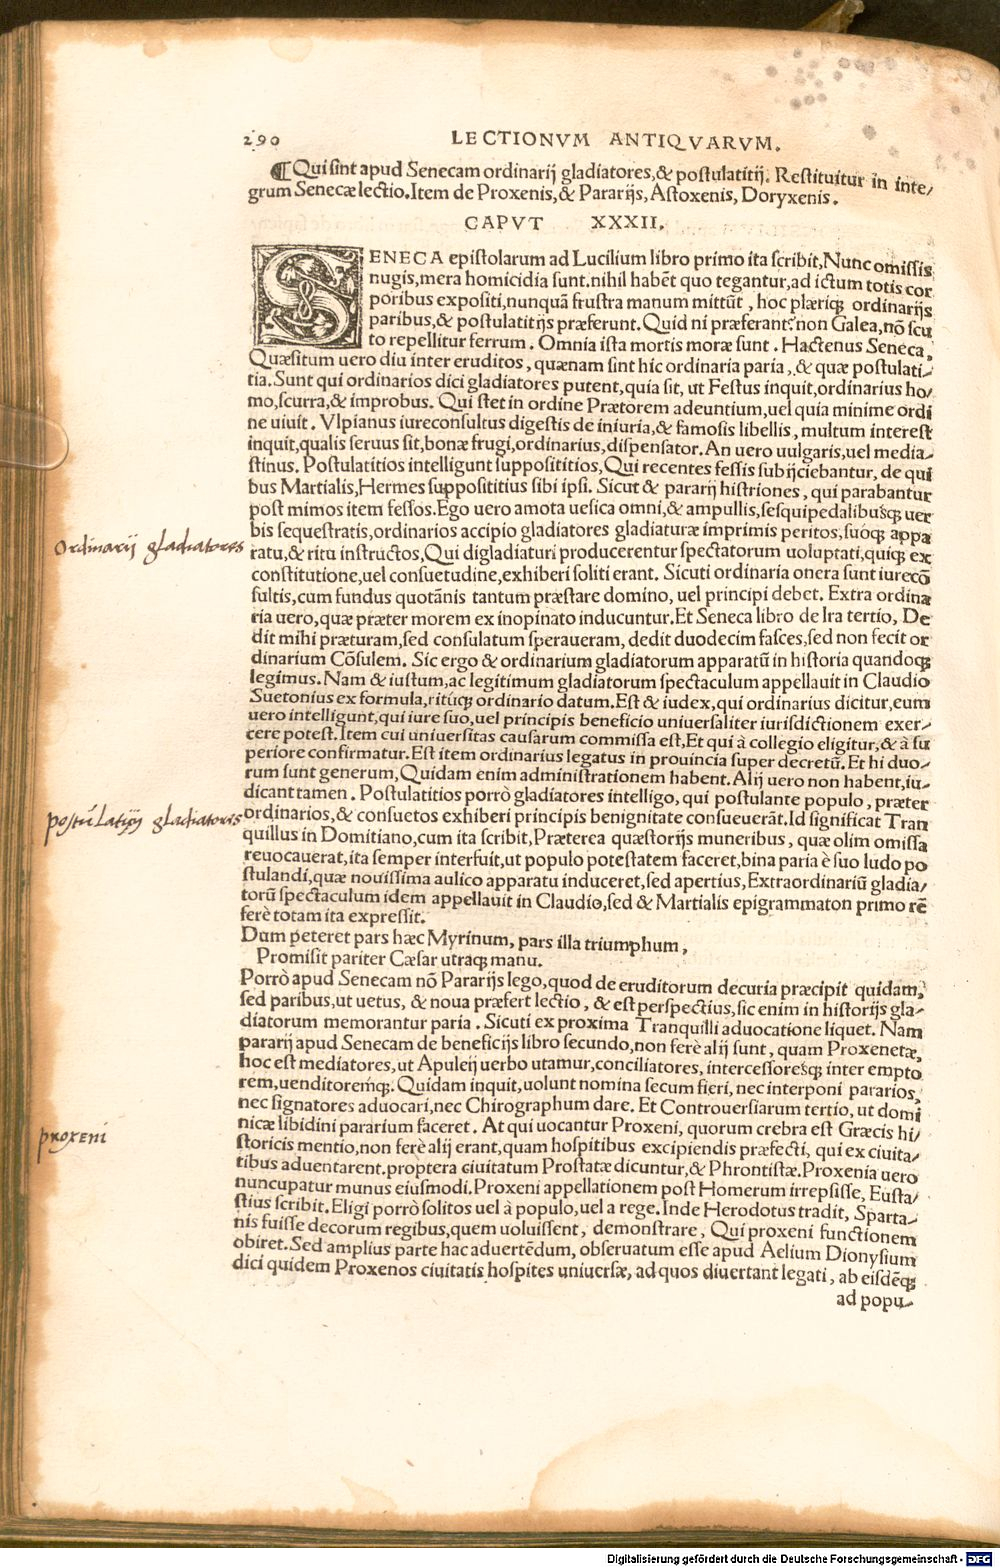 290 LECTIONVM ANTIQVARVM.
¶ Qui sint apud Senecam ordinarij gladiatores,& postulatitij. Restituitur in inte/
grum Senecæ lectio.Item de Proxenis,& Pararijs, Astoxenis, Doryxenis.
CAPVT XXXII.
SENECA epistolarum ad Lucilium libro primo ita scribit,Nunc omissis
nugis,mera homicidia sunt.nihil habẽt quo tegantur,ad ictum totis cor
poribus expositi,nunquã frustra manum mittũt, hoc plæriq; ordinarijs
paribus,& postulatitijs præferunt. Quid ni præferant?non Galea,nõ scu
to repellitur ferrum. Omnia ista mortis moræ sunt. Hactenus Seneca.
Quæsitum uero diu inter eruditos, quænam sint hic ordinaria paria,& quæ postulati/
tia. Sunt qui ordinarios dici gladiatores putent,quia sit, ut Festus inquit,ordinarius ho/
mo,scurra,& improbus. Qui stet in ordine Prætorem adeuntium,uel quia minime ordi
ne uiuit. Vlpianus iureconsultus digestis de iniuria,& famosis libellis, multum interest
inquit,qualis seruus sit,bonæ frugi,ordinarius,dispensator. An uero uulgaris,uel media/
stinus. Postulatitios intelligunt supposititios,Qui recentes fessis subijciebantur, de qui
bus Martialis,Hermes supposititius sibi ipsi. Sicut & pararij histriones, qui parabantur
post mimos item fessos.Ego uero amota uesica omni,& ampullis,sesquipedalibusq; uer
bis sequestratis,ordinarios accipio gladiatores gladiaturæ imprimis peritos,suóq; appa
Ordinarij gladiatores
ratu,& ritu instructos,Qui digladiaturi producerentur spectatorum uoluptati,quiq; ex
constitutione,uel consuetudine,exhiberi soliti erant. Sicuti ordinaria onera sunt iurecõ
sultis,cum fundus quotãnis tantum præstare domino, uel principi debet. Extra ordina
ria uero,quæ præter morem ex inopinato inducuntur.Et Seneca libro de Ira tertio, De
dit mihi præturam,sed consulatum speraueram, dedit duodecim fasces,sed non fecit or
dinarium Cõsulem. Sic ergo & ordinarium gladiatorum apparatũ in historia quandoq;
legimus. Nam & iustum,ac legitimum gladiatorum spectaculum appellauit in Claudio
Suetonius ex formula,rituq; ordinario datum.Est & iudex,qui ordinarius dicitur,eum
uero intelligunt,qui iure suo,uel principis beneficio uniuersaliter iurisdictionem exer/
cere potest.Item cui uniuersitas causarum commissa est,Et qui à collegio eligitur,& à su
periore confirmatur.Est item ordinarius legatus in prouincia super decretũ. Et hi duo/
rum sunt generum,Quidam enim administrationem habent. Alij uero non habent,iu/
dicant tamen. Postulatitios porrò gladiatores intelligo, qui postulante populo, præter
postulatitij gladiatores
ordinarios,& consuetos exhiberi principis benignitate consueuerãt.Id significat Tran
quillus in Domitiano,cum ita scribit,Præterea quæstorijs muneribus, quæ olim omissa
reuocauerat,ita semper interfuit,ut populo potestatem faceret,bina paria è suo ludo po
stulandi,quæ nouissima aulico apparatu induceret,sed apertius,Extraordinariũ gladia/
torũ spectaculum idem appellauit in Claudio,sed & Martialis epigrammaton primo rẽ
ferè totam ita expressit.
Dum peteret pars hæc Myrinum, pars illa triumphum,
Promisit pariter Cæsar utraq; manu.
Porrò apud Senecam nõ Pararijs lego,quod de eruditorum decuria præcipit quidam,
sed paribus,ut uetus, & noua præfert lectio, & est perspectius,sic enim in historijs gla/
diatorum memorantur paria. Sicuti ex proxima Tranquilli aduocatione liquet. Nam
pararij apud Senecam de beneficijs libro secundo,non ferè alij sunt, quam Proxenetæ,
hoc est mediatores,ut Apuleij uerbo utamur,conciliatores, intercessoresq; inter empto
rem,uenditoremq;. Quidam inquit,uolunt nomina secum fieri, nec interponi pararios,
nec signatores aduocari,nec Chirographum dare. Et Controuersiarum tertio, ut domi
nicæ libidini pararium faceret. At qui uocantur Proxeni, quorum crebra est Græcis hi/
proxeni
storicis mentio,non ferè alij erant,quam hospitibus excipiendis præfecti, qui ex ciuita/
tibus aduentarent.proptera ciuitatum Prostatæ dicuntur,& Phrontistæ.Proxenia uero
nuncupatur munus eiusmodi.Proxeni appellationem post Homerum irrepsisse, Eusta/
stius scribit.Eligi porrò solitos uel à populo,uel a rege.Inde Herodotus tradit, Sparta/
nis fuisse decorum regibus,quem uoluissent, demonstrare, Qui proxeni functionem
obiret.Sed amplius parte hac aduertẽdum, obseruatum esse apud Aelium Dionysium
dici quidem Proxenos ciuitatis hospites uniuersæ, ad quos diuertant legati, ab eisdẽq;
ad popu/
Digitalisierung gefördert durch die Deutsche Forschungsgemeinschaft - DFG